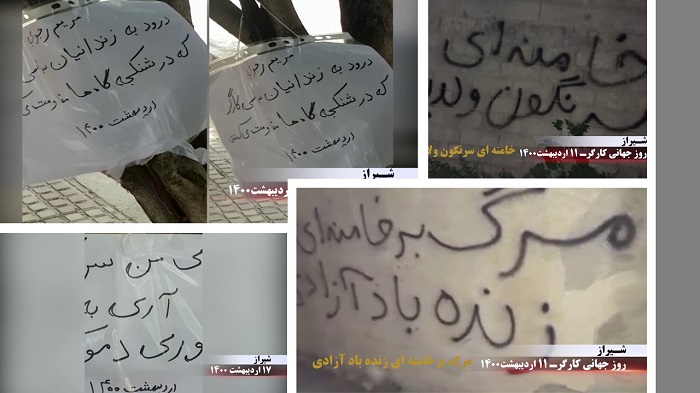 مریم رجوی
درود به زندانیان
که در شکنجه گاه‌ها مقاومت می
اردیبهشت ۱۴۰۰
مریم رجوی
درود به زندانیان سیاسی کارگر
که در شکنجه گاه‌ها مقاومت می کنند
اردیبهشت ۱۴۰۰
شیراز
اردیبهشت ۱۴۰۰
خامنه‌ای
سرنگون ولد
شیراز
روز جهانی کارگر - ۱۱ اردیبهشت ۱۴۰۰
خامنه ای سرنگون ولا
ی من سر
آری به
وری دمو
اردیبهشت ۱۴۰۰
شیراز
۱۷ اردیبهشت ۱۴۰۰
مرگ بر خامنه‌ای
زنده باد آزاد
شیراز
روز جهانی کارگر - ۱۱ اردیبهشت ۱۴۰۰
مرگ بر خامنه ای زنده باد آزادی